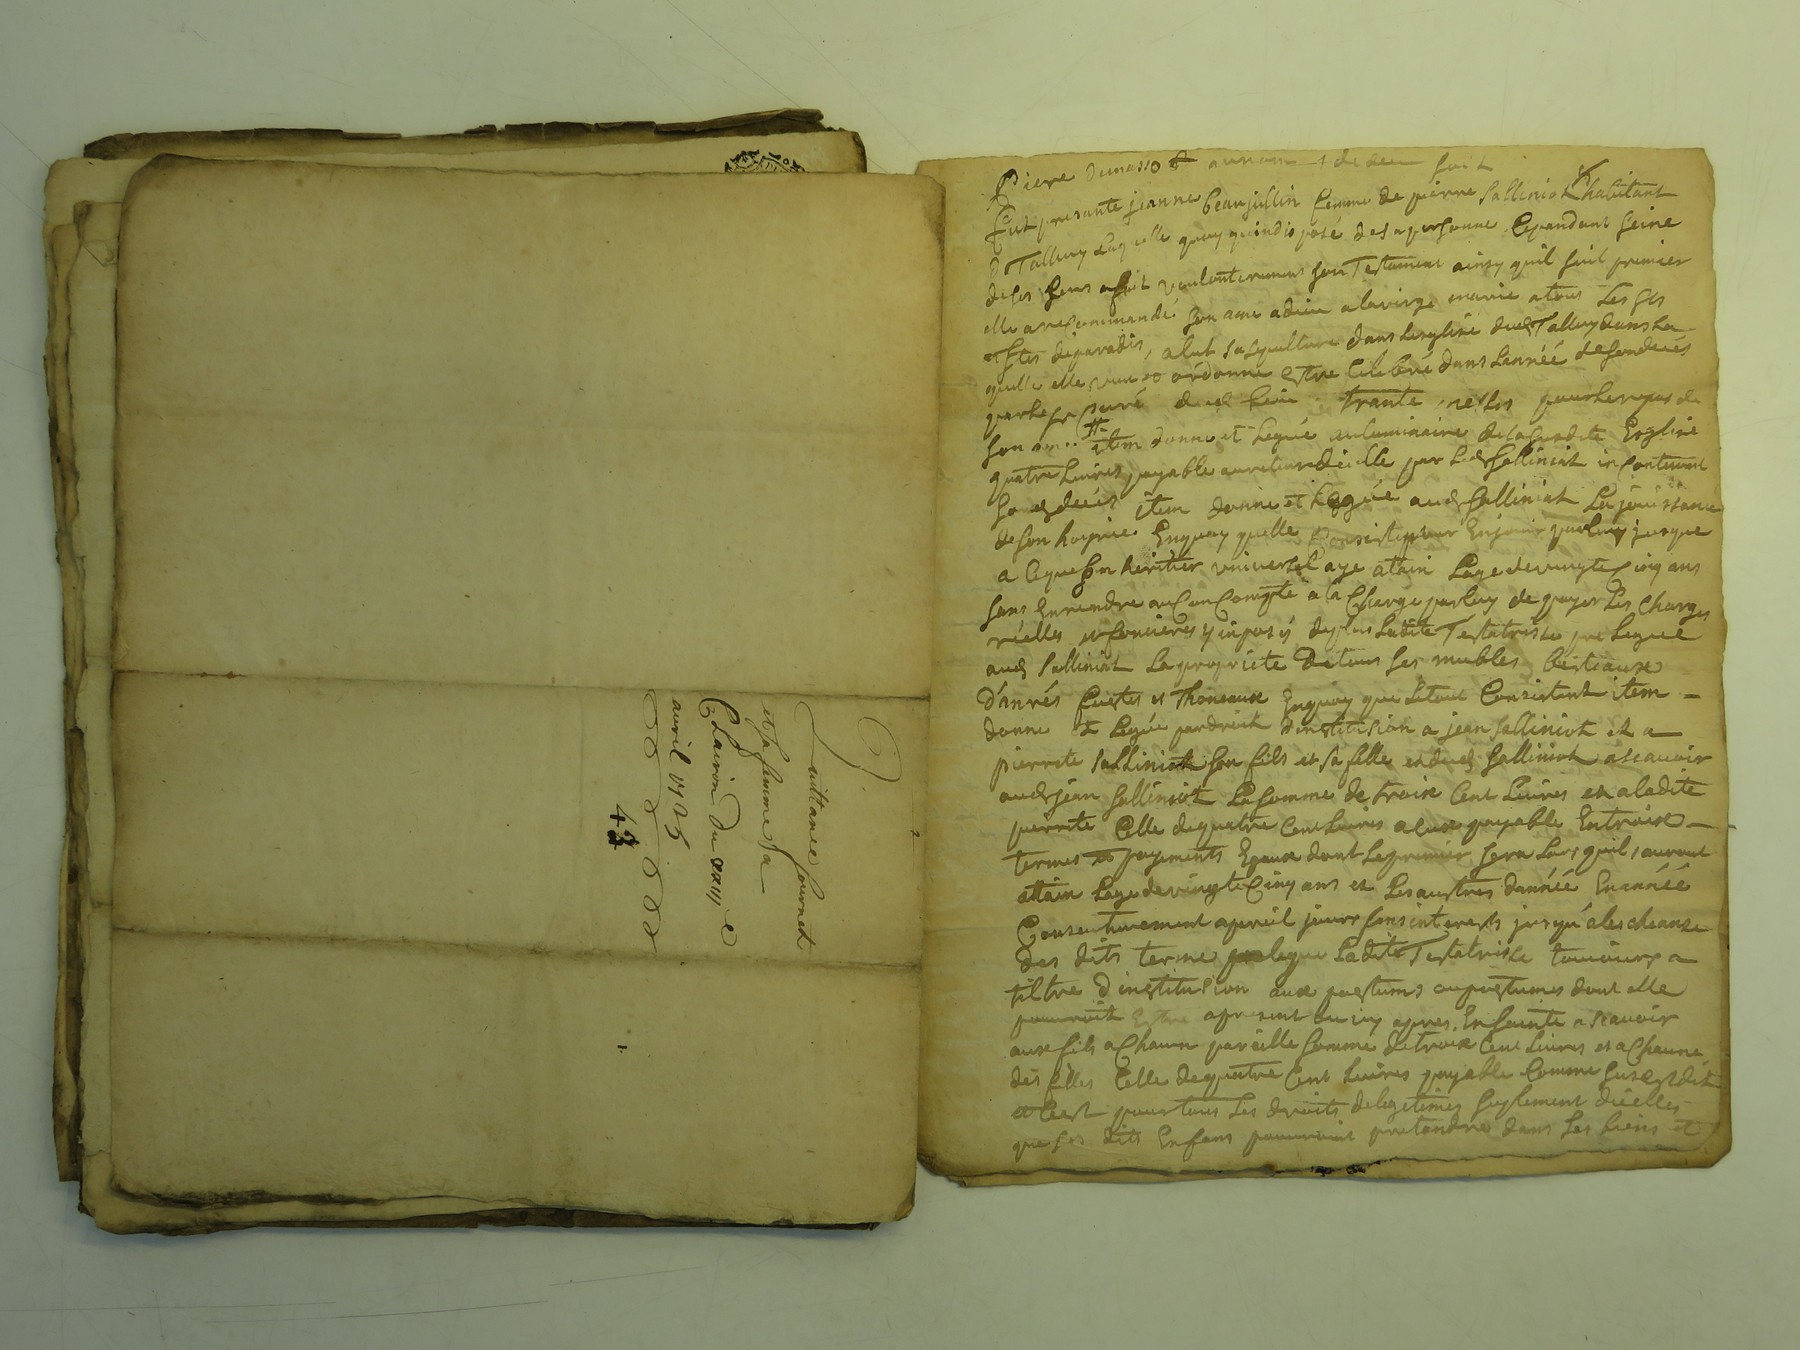 Quittance Journet
et sa femme a
Clairon du XXIII e
avril 1725
43
Pierre Dumassot
Fut presante jeanne beaujullin femme de pierre Salliniot habitant
de Talluy laquelle quoy quindisposé de sa personne Cepandant Seine
de ses sens a fait voulonterement son Testament ainsy quil suit premier
elle a recommandé son ame a dieu a la virge marie a tous Les Sts
et Stes du paradis, a lut sa sepulture dans Lesglise dud Talluy dans La
quelle elle veut et ordonne estre Celebré dans Lannéé de son decés
par le Sr Curé dud lieu trante messes pour le repos de
son ame item donne et Legue au luminaire de la susdite Esglise
quatre Livres payable au ... dicelle par Led Salliniot incontinent
sond decés item donne et Legue aud Salliniot La jouissance
de son hoyrie En quoy quelle Consiste pour En jouir par luy jusque
a Ce que son héritier universel aye atain Lage de vingt Cinq ans
sans En rendre auCun Compte a la Charge par luy de payer Les Charges
réelles et foncieres y inposés de plus Ladite Testatrisse pre Legue
aud Salliniot La propriete de tous ses mubles bestiaux
danrés fustes et Thoneaux En quoy que Le tout Consistent item
donne et Legue par droit dinstitusion a jean Salliniot et a
pierrete Salliniot son fils et sa fille et dud Salliniot a scauoir
aud jean Salliniot La somme de trois Cent Livres et a ladite
pierrete Celle de quatre Cent Livres a Lux payable En trois
termes et payements Egaux dont Le premier sera Lors quil auront
attain Lage de vingt Cinq ans et Les austres dannéé En annéé
Consecutivement a pareil jours sans interests jusqu'a les cheance
des dits terme prelegue Ladite Testatrisse toujours a
tiltre dinstitusion aux postums ou postumes dont elle
pourroit Estre a present ou cy apres Enseinte a scauoir
aux fils a Chacun pareille somme de trois Cent Livres et a Chacune
des filles Celle de quatre Cent Livres payable Comme sus est dit
et Cest pour tous Les droits de legetimes suplement dicelles
que ses dits Enfans pourroient pretandre dans Ses biens et